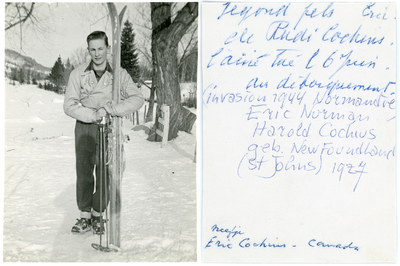 Segond fils Eric
de Rudi Cochius.
l'ainé tué l 6 Juin
au débarquement
(invasion 1944 Normandie
Eric Norman
Harold Cochius
geb. New Foundland
(St Johns) 1927
neefje
Eric Cochius - Canada